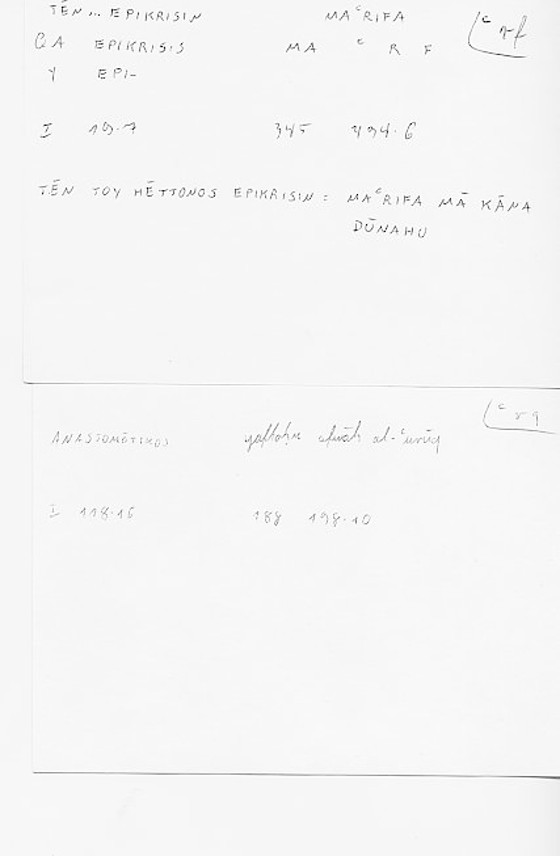 TĒN... EPIKRISIN MAʿRIFA ʿrf
QA EPIKRISIS MA ʿ R F
Y EPI-
I 19.7 345 494.6
TĒN TOY HĒTTONOS EPIKRISIN = MAʿRIFA MĀ KĀNA
DŪNAHU
ʿrq
ANASTOMŌTIKOS yaftaḥu afwāh al-ʿurūq
I 118.16 188 198.10